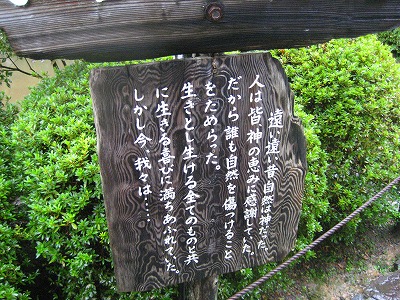 遠い遠い昔自然は神だった。
人は皆神の恵みに感謝していた。
だから誰も自然を傷つけること
をためらった。
生きとし生ける全てのものと共
に生きる喜びに満ちあふれていた。
しかし今、我々は……